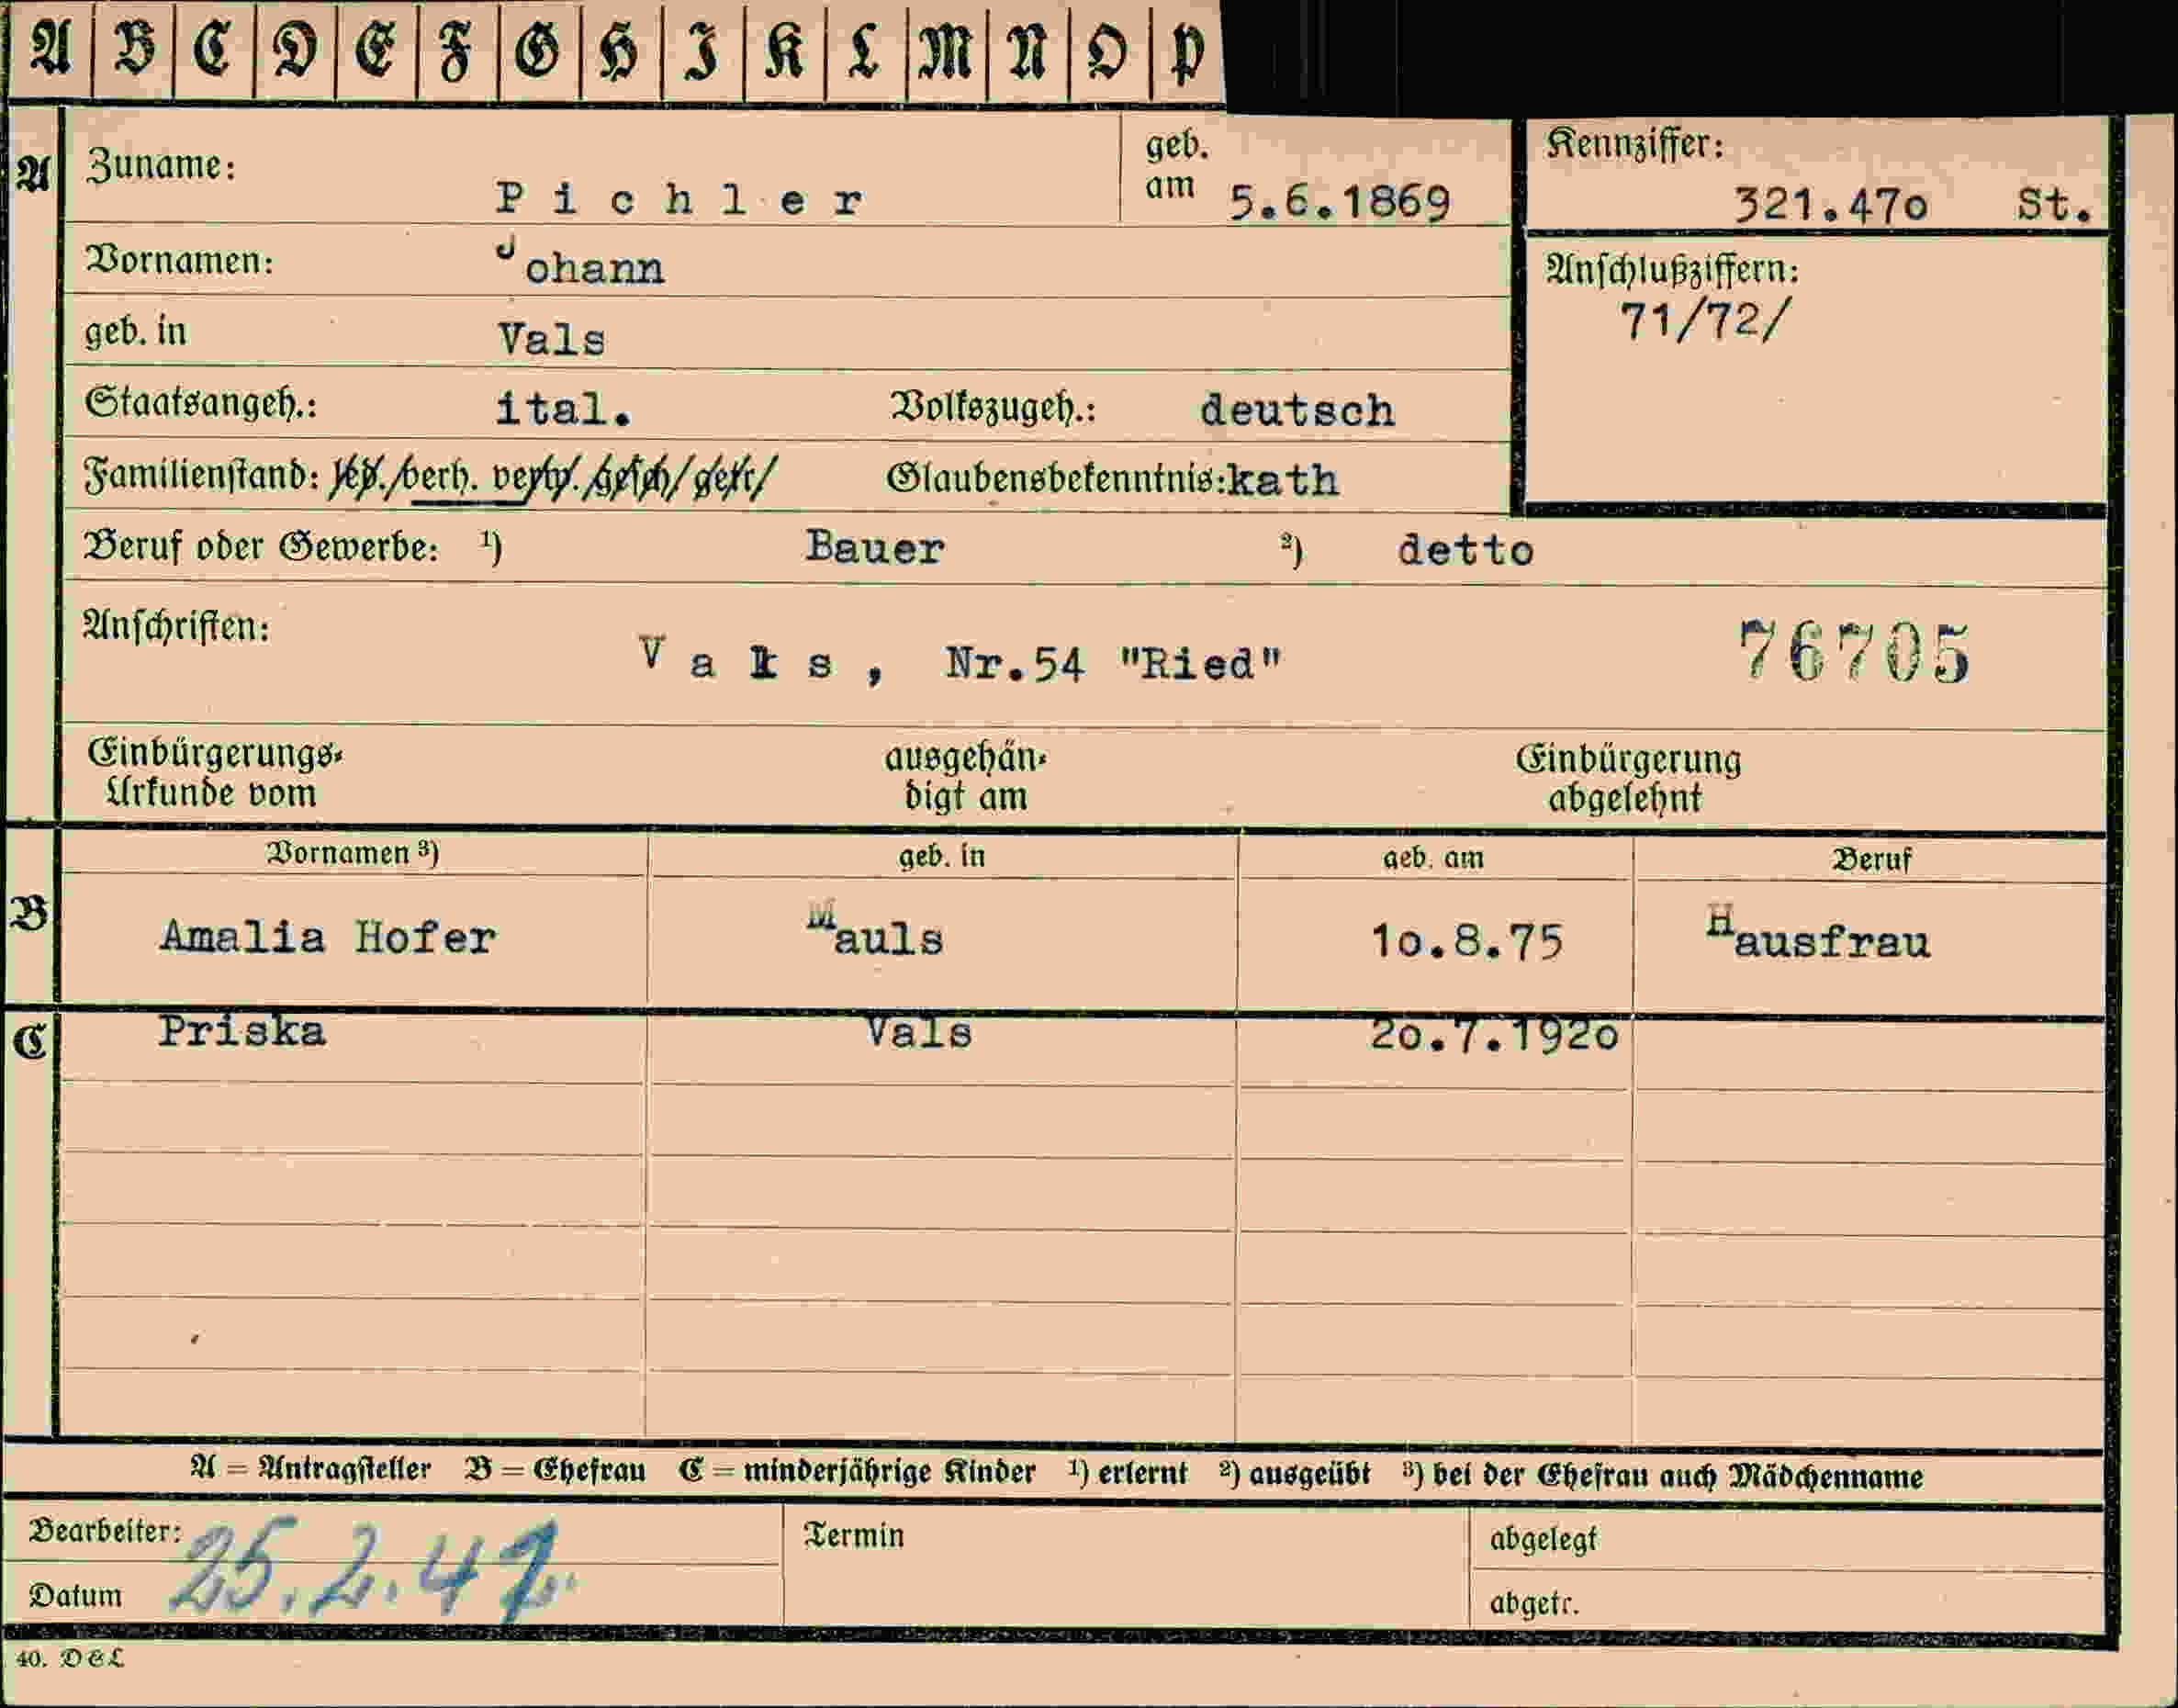 A B C D E F G H I K L M N O P
A
Zuname: Pichler geb. am 5.6.1869
Kennziffer: 321.47o St.
Vornamen: Johann
Anschlußziffern: 71/72/
geb. in Vals
Staatsangeh.: ital. Volkszugeh.: deutsch
Familienstand: led./verh. verw./gesch/getr/ Glaubensbekenntnis: kath
Beruf oder Gewerbe: 1) Bauer 2) detto
Anschriften: Vals, Nr.54 "Ried" 76705
Einbürgerungs-Urkunde vom
ausgehändigt am
Einbürgerung abgelehnt
Vornamen 3) geb. in geb. am Beruf
B Amalia Hofer Mauls 1o.8.75 Hausfrau
C Priska Vals 2o.7.192o
A = Antragsteller B = Ehefrau C = minderjährige Kinder 1) erlernt 2) ausgeübt 3) bei der Ehefrau auch Mädchenname
Bearbeiter:
Datum 25.2.42
Termin
abgelegt
abgetr.
40. D&L